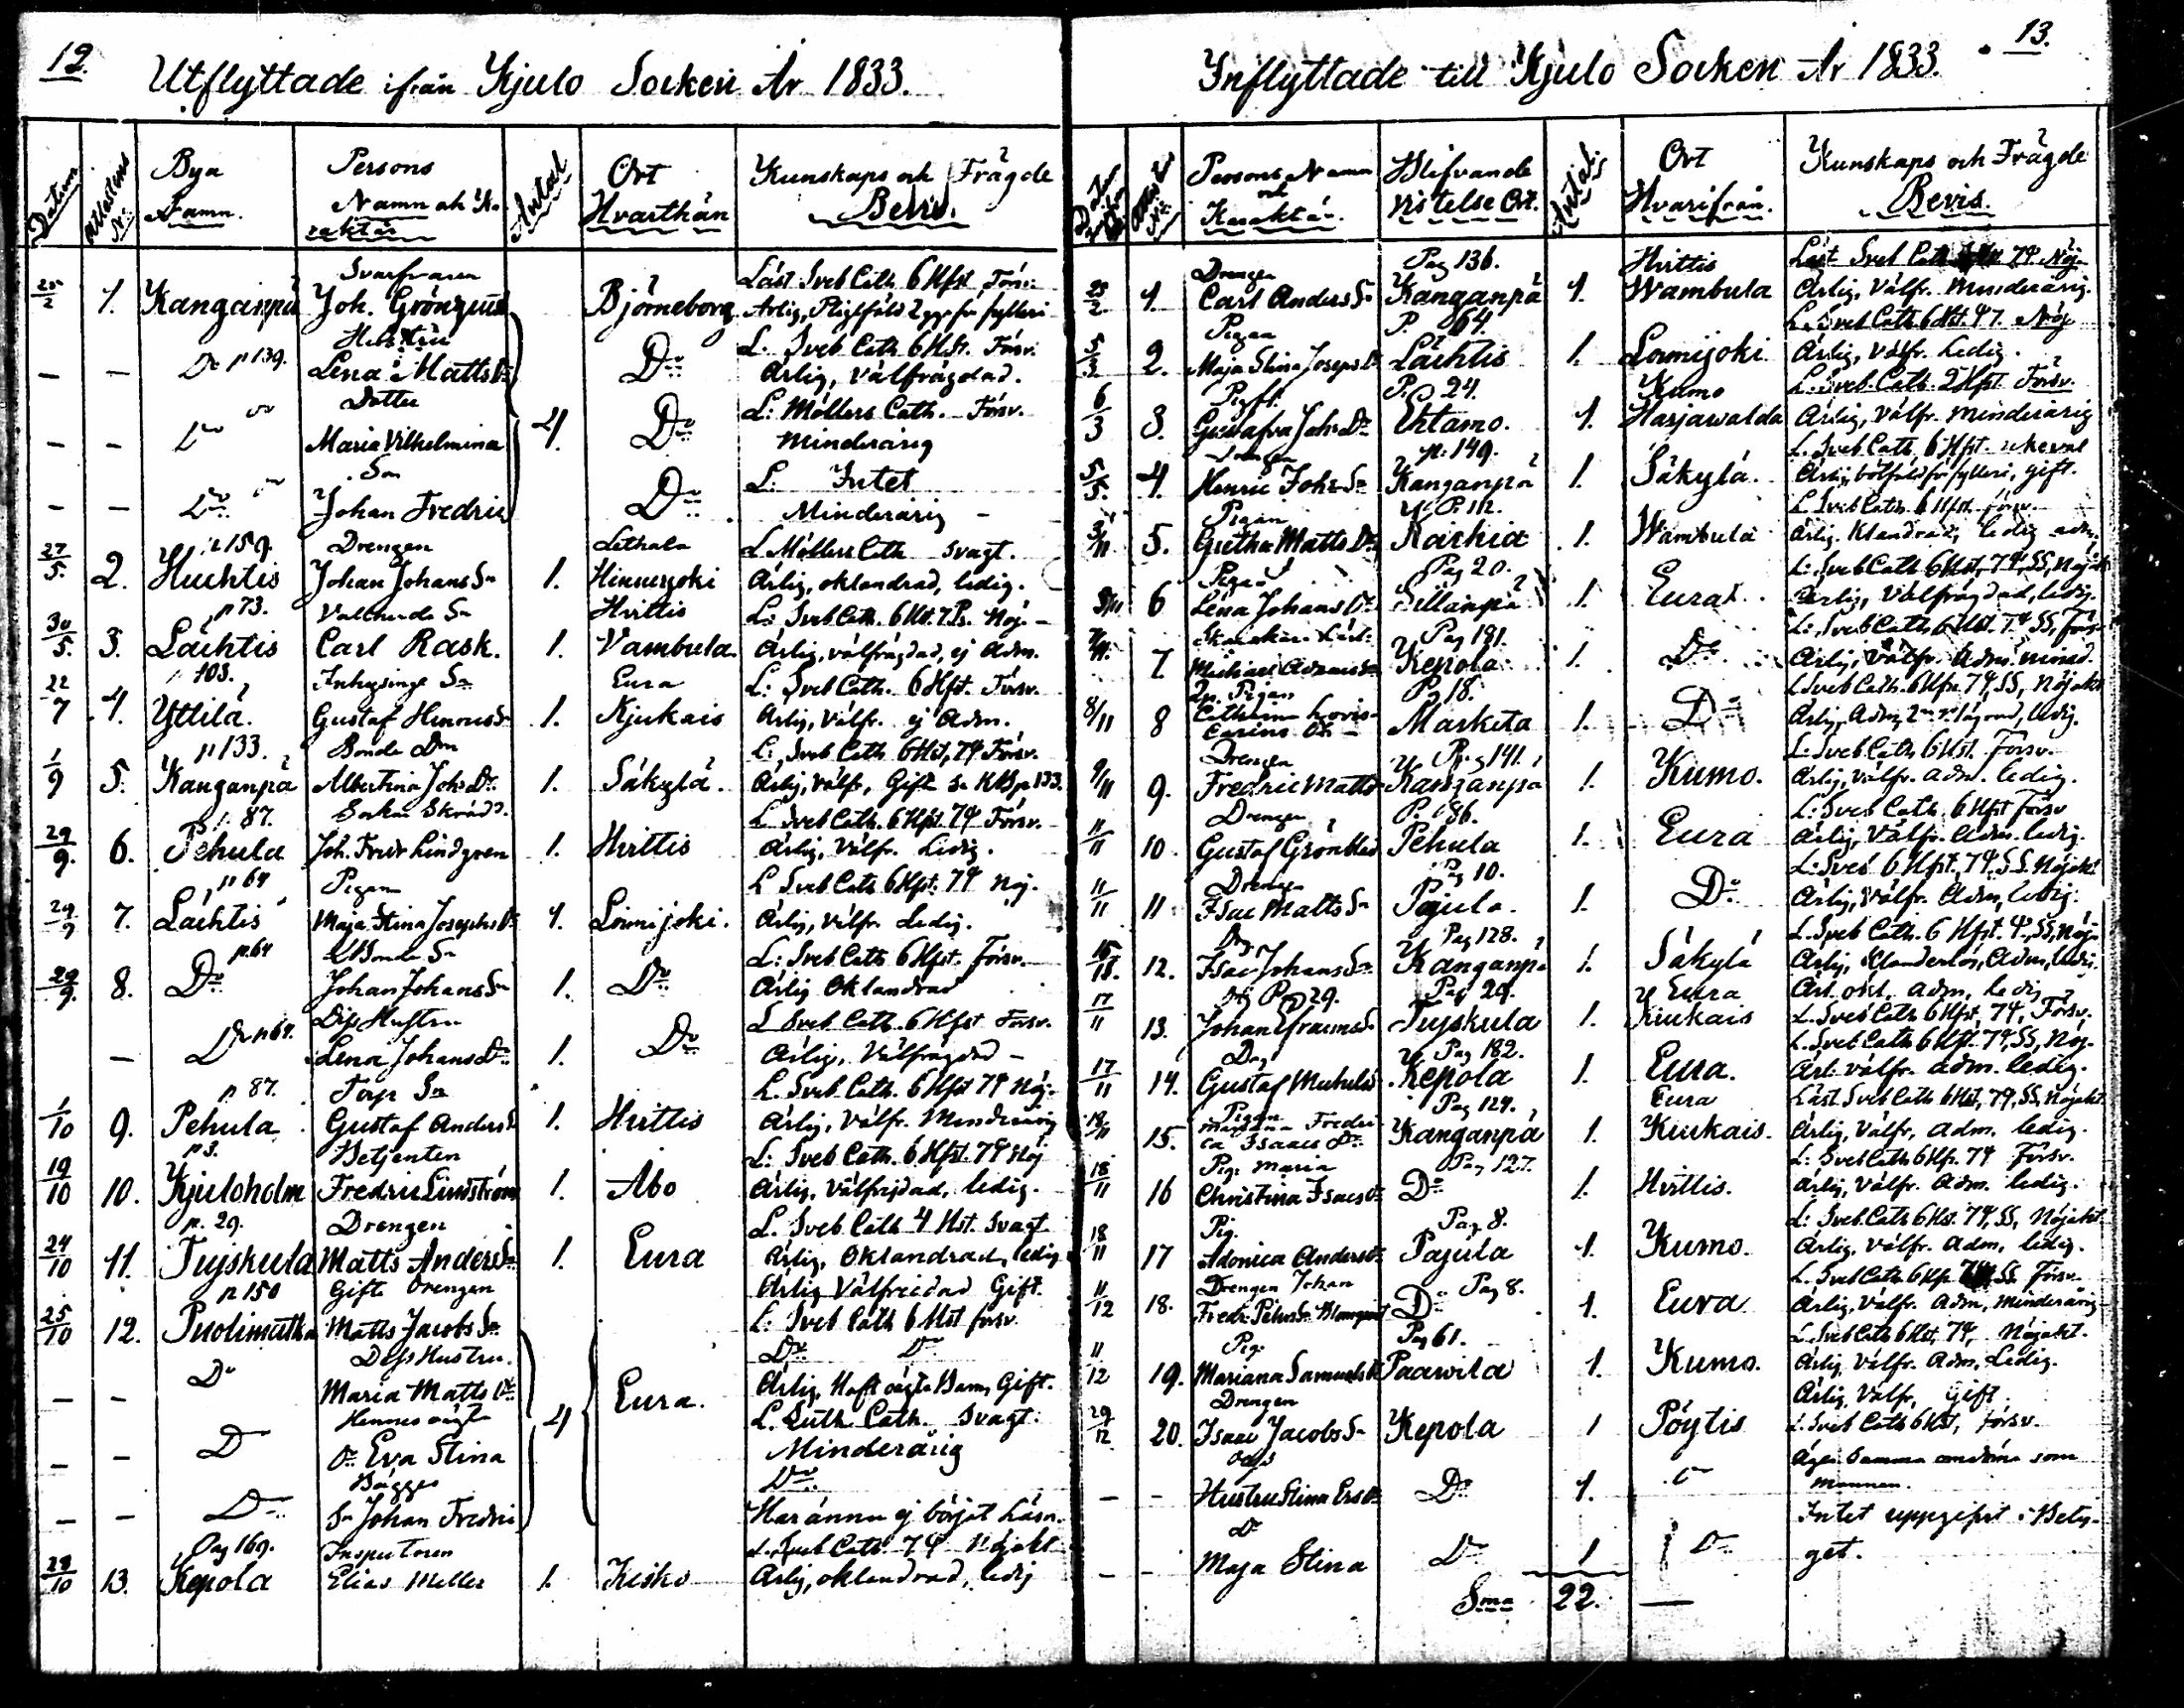 12.
Utflyttade ifrån Kjulo Socken År 1833.
Datum
Attestens No
Bya Namn.
Persons Namn och Karaktär
Antal
Ort Hvarthän
Kunskaps och Frägde Bevis.
Svarfvaren Läst Sveb Cath 6 Hfst Försv:
25/2 1. Kanganpä Joh. Grönqvist Björneborg Ärlig, Pligtfäld 2 ggr för fylleri
Hustru L. Sveb Cath 6 Hfst. Försv.
— — Do p 139. Lena Matts Dr Do Ärlig, Välfrägdad.
Dotter L: Möllers Cath. Försv.
— — Do Maria Vilhelmina 4. Do Minderårig
Son L: Intet
— — Do Johan Fredric Do Minderårig —
p 159. Drengen L. Möllers Cath svagt.
27/5. 2. Huchtis Johan Johans Sn 1. Hinnerjoki Ärlig, oklandrad, ledig.
p 73. Hvittis L: Sveb Cath. 6 Hst. 7. Ps. Nöj. —
30/5. 3. Lächtis Carl Rask. 1. Vambula. Ärlig, välfrägdad, ej Adm.
103. Inhysings Sn Eura L: Sveb Cath. 6 Hfst. Försv.
22/7 4. Yttilä. Gustaf Henrics Sn 1. Kjukais Ärlig, Välfr. ej Adm.
p 133. Bonde L: Sveb Cath 6 Hst, 74 Försv.
1/9 5. Kanganpä Albertina Johs Dr 1. Säkylä. Ärlig, Välfr, Gift se KB p 133.
p. 87. Socken Skrädd. L Sveb Cath. 6 Hfst 74 Försv.
29/9. 6. Pehula Joh. Fredr Lindgren 1. Hvittis Ärlig, Välfr. Ledig.
p 64 Pigan L Sveb Cath 6 Hfst. 74 Nöj.
29/9 7. Lächtis Maja Stina Josephs Dr 1. Loimijoki. Ärlig, Välfr. Ledig.
p. 64 Bonde Sn L: Sveb Cath 6 Hfst. Försv.
29/9. 8. Do Johan Johans Sn 1. Do Ärlig Oklandrad
Dess Hustru L Sveb Cath. 6 Hfst Försv.
— Do p 64. Lena Johans Dr 1. Do Ärlig, Välfrägdad —
p 87. Torp Sn L. Sveb Cath. 6 Hfst 74 Nöj.
1/10 9. Pehula Gustaf Anders Sn 1. Hvittis Ärlig, Välfr. Minderårig
p 3. Betjenten L: Sveb Cath. 6 Hfst. 74 Nöj
19/10 10. Kjuloholm Fredric Lindström 1. Åbo Ärlig, Välfrägdad, ledig.
p. 29. Drengen L. Sveb Cath 4 Hst. Svagt
24/10 11. Tujskula Matts Anders Sn 1. Eura Ärlig, Oklandrad, ledig
p 150 Gifte Drengen Ärlig Välfrägdad Gift.
25/10 12. Puolimatka Matts Jacobs Sn L: Sveb Cath 6 Hst försv.
Do Dess Hustru. Do Do
— — Maria Matts Dr Eura. Ärlig, Haft oägta Barn, Gift.
Hennes oägta 4 L. Luth Cath. Svagt.
— — Do Dr Eva Stina Minderårig
Bägges Do
— — Do Sn Johan Fredric Har ännu ej börjat Läsa.
Pag 169. Inspectoren L. Sveb Cath 74 Nöjakt
28/10 13. Kepola Elias Meller 1. Kisko Ärlig, oklandrad, ledig
13.
Inflyttade till Kjulo Socken År 1833.
Persons Namn och Karaktär
Blifvande vistelse Ort.
Antal
Ort Hvarifrån.
Kunskaps och Frägde Bevis.
Drengen Pag 136. Hvittis Läst Sveb Cath 74 Nöj.
25/2. 1. Carl Anders Sn Kanganpä 1. Wambula Ärlig, Välfr. Minderårig.
Pigan P. 64. L. Sveb Cath 6 Hst. 47. Nöj
5/3 2. Maja Stina Joseps Dr Lächtis 1. Loimijoki. Ärlig, Välfr. Ledig.
P. 24. Kumo L: Sveb. Cath. 2 Hfst. Försv.
6/3 3. Gustafva Johs Dr Ehtamo. 1. Harjawalda Ärlig, Välfr. Minderårig
p. 149. L. Sveb Cath 6 Hfst.
5/5. 4. Henric Johs Sn Kanganpä 1. Säkylä. Ärlig, bötfäld för fylleri, gift.
Pigan L Sveb Cath 6 Hfst. försv.
3/11 5. Gretha Matts Dr Karhia 1. Wambula Ärlig. Klandrad, ledig adm.
Pigan Pag 20. L: Sveb Cath 6 Hst, 74, SS, Nöjakt
6 Lena Johans Dr Sillanpä 1. Eura. Ärlig, Välfrägdad, ledig.
Pag 181. L: Sveb Cath 6 Hst. 74 SS, Försv
7 Michael Adams Sn Kepola 1. Do Ärlig, Välfr. Adm. minderå.
Pigan P. 18. L Sveb Cath. 6 Hfst 74, SS, Nöjakt
8/11 8 Cathrina Lovisa Carins Dr Markita 1. Do Ärlig, Adm, ledig.
Drengen Pag 141. L: Sveb Cath 6 Hst. Försv.
9/11 9. Fredric Matts Kanganpä 1. Kumo. Ärlig, Välfr. adm. ledig.
Drengen P. 86. L: Sveb Cath. 6 Hfst Försv
11/11 10. Gustaf Grönblad Pehula 1. Eura Ärlig, Välfr. Adm. ledig.
Drengen Pag 10. L: Sveb 6 Hfst. 74, SS. Nöjakt
11/11 11 Isac Matts Sn Pajula. 1. Do Ärlig, Välfr. Adm, ledig.
Drg Pag 128. L. Sveb Cath. 6 Hfst. 4, SS, Nöj.
12. Isac Johans Sn Kanganpä 1. Säkylä Ärlig, Klanderlös, Adm, ledig.
Pag 29. Eura Ärl. okl. adm, ledig
17/11 13. Johan Efraims Sn Tujskula 1. Kiukais L. Sveb Cath 6 Hfst, 74, Försv.
Drg Pag 182. L. Sveb Cath 6 Hfst 74, SS, Nöj.
17/11 14. Gustaf Kepola 1. Eura. Ärl. Välfr. adm. ledig.
Pigan Pag 124. Eura Läst Sveb Cath 6 Hst, 74, SS, Nöjakt
18/11 15. Mariana Fredrica Isaacs Dr Kanganpä 1. Kiukais. Ärlig, Välfr, adm. ledig.
Pig. Maria Pag 127. L: Sveb Cath 6 Hfst. 74 Försv.
18/11 16 Christina Isacs Dr Do 1. Hvittis. Ärlig, Välfr. Adm. ledig.
Pig. Pag 8. L: Sveb. Cath 6 Hst. 74, SS, Nöjakt.
18/11 17 Adonica Anders Dr Pajula 1. Kumo. Ärlig, Välfr. adm, ledig.
Drengen Johan Pag 8. L. Sveb Cath 6 Hfst SS Försv.
11/12 18. Fredr Pehrs Sn Blomqvist Do 1. Eura Ärlig, Välfr. Adm, Minderårig
Pig. Pag 61. L. Sveb Cath 6 Hst, 74, Nöjakt.
11/12 19. Mariana Samuels Dr Paawila 1. Kumo. Ärlig Välfr. Adm, Ledig.
Drengen Ärlig Välfr, Gift.
29/12 20. Isaac Jacobs Sn Kepola 1 Pöytis L. Sveb Cath 6 Hst, Försv.
Äger samma omdöme som
— — Hustru Stina Ers Dr Do 1. Do mannen.
Dr Intet uppgifvit i Bety-
— — Maja Stina Do 1 Do get.
Sma 22. —